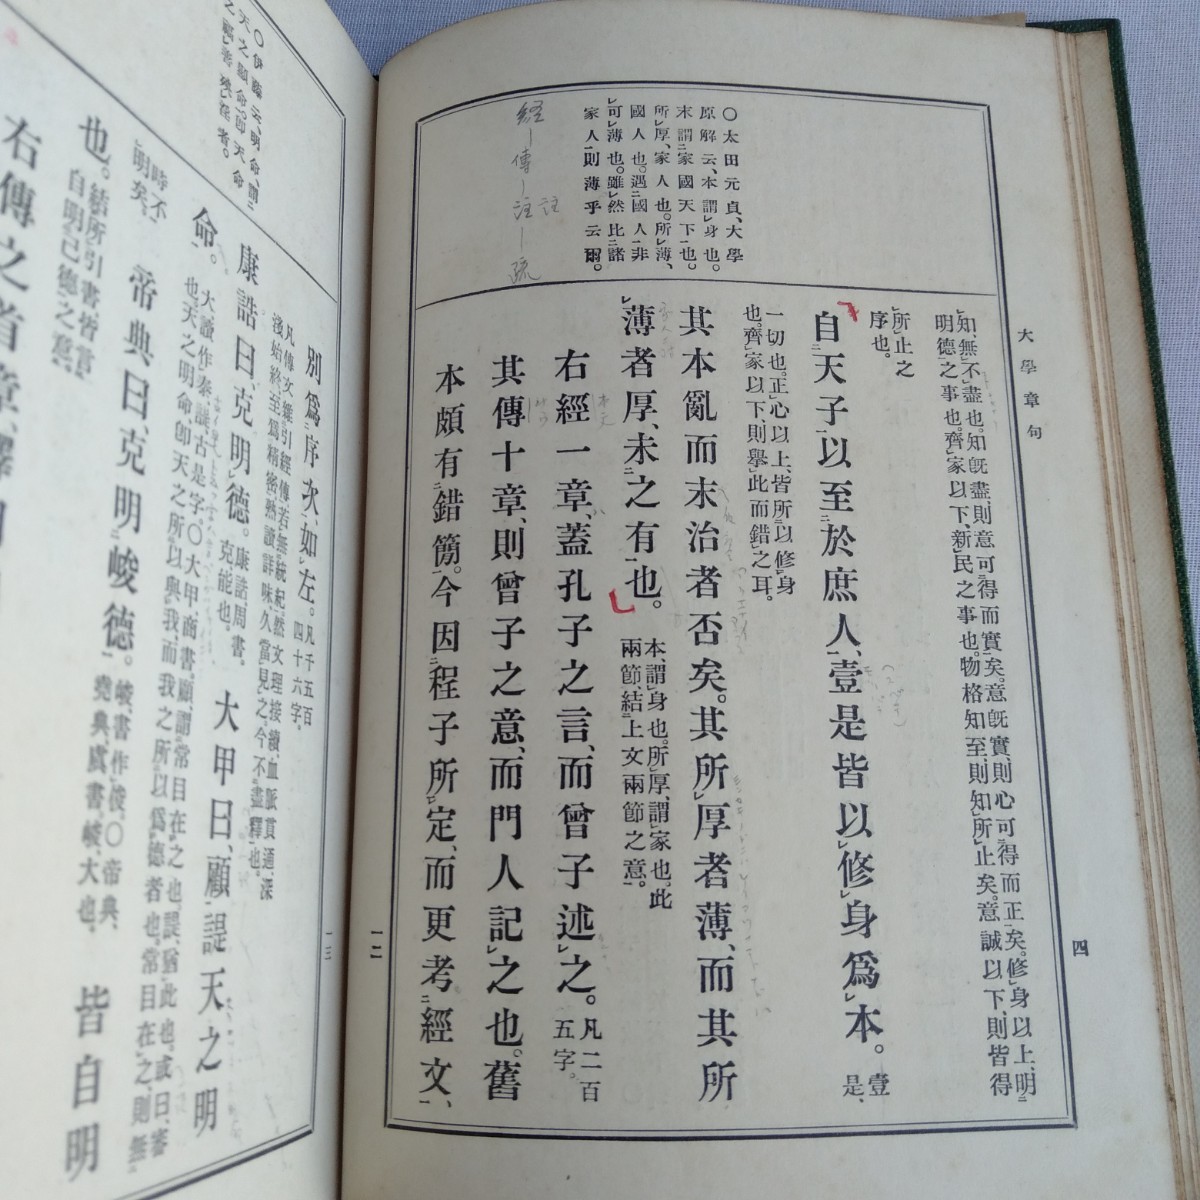 大學章句
四
一二
〇太田元貞、大學
原解云、本謂身也。
末謂家國天下也。
所厚、家人也。所薄、
國人也。遇國人非
可薄也。雖然比諸
家人則薄乎云爾。
経―傳―註―疏
註
知、無不盡也。知旣盡則意可得而實矣。意旣實、則心可得而正矣。修身以上、明
明德之事也。齊家以下、新民之事也。物格知至、則知所止矣。意誠以下、則皆得
所止之
序也。
自天子以至於庶人、壹是皆以修身爲本。壹
是、
一切也。正心以上、皆所以修身
也。齊家以下、則舉此而錯之耳。
其本亂而末治者否矣。其所厚者薄、而其所
薄者厚、未之有也。本、謂身也。所厚、謂家也。此
兩節、結上文兩節之意。
右經一章、蓋孔子之言、而曾子述之。凡二百
五字。
其傳十章、則曾子之意、而門人記之也。舊
本頗有錯簡。今因程子所定、而更考經文、
一三
〇伊藤云、明命卽
天之顯命。卽天命
之福善殃淫者。
別爲序次、如左。凡千五百
四十六字。
凡傳文雜引經傳、若無統紀、然文理接續、血脈貫通、深
淺始終、至爲精密。熟讀詳味、久當見之。今不盡釋也。
康誥曰、克明德。康誥周書。
克能也。
大甲曰、顧諟天之明
命。大讀作泰。諟古是字。〇大甲、商書。顧、謂常目在之也。諟、猶此也。或曰、審
也。天之明命、卽天之所以與我、而我之所以爲德者也。常目在之、則無
時不
明矣。
帝典曰、克明峻德。峻、書作俊。〇帝典、
堯典、虞書。峻、大也。
皆自明
也。結所引書、皆言
自明己德之意。
右傳之首章、釋明